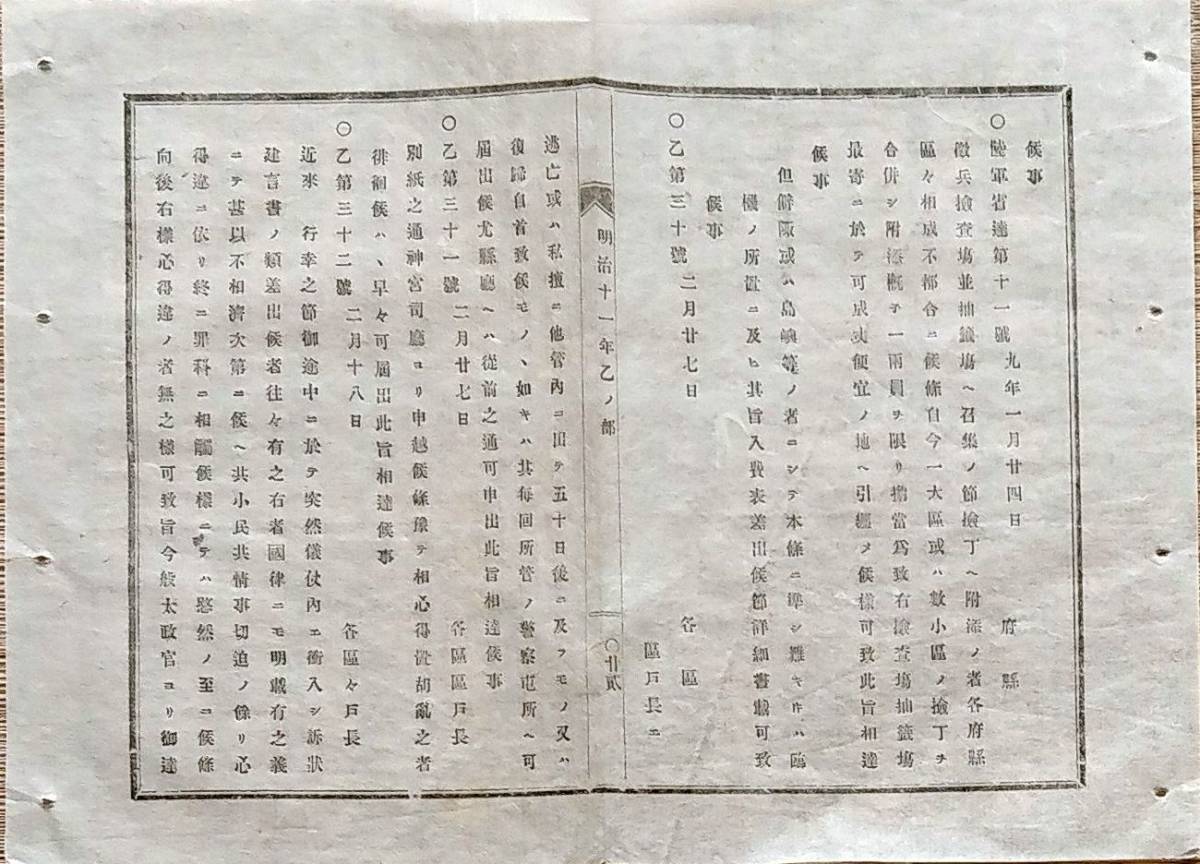 候事
○陸軍省達第十一號 九年一月廿四日 府縣
徵兵撿査塲並抽籤塲ヘ召集ノ節撿丁ヘ附添ノ者各府縣
區々相成不都合ニ候條自今一大區或ハ數小區ノ撿丁ヲ
合併シ附添概テ一兩員ヲ限リ擔當爲致右撿查塲抽籤塲
最寄ニ於テ可成丈便宜ノ地ヘ引纒メ候樣可致此旨相達
候事
但僻陬或ハ島嶼等ノ者ニシテ本條ニ準シ難キハ臨
機ノ所置ニ及ヒ其旨入費表差出候節詳細書載可致
候事
○乙第三十號 二月廿七日 各區
區戸長ニ
明治十一年乙ノ部 ○廿貳
逃亡或ハ私擅ニ他管內ニ出テ五十日後ニ及フモノ又ハ
復歸自首致候モノヽ如キハ其每回所管ノ警察屯所ヘ可
屆出候尤縣廳ヘハ從前之通可申出此旨相達候事
○乙第三十一號 二月廿七日 各區區戸長
別紙之通神宮司廳ヨリ申越候條豫テ相心得置胡亂之者
徘徊候ハヽ早々可屆出此旨相達候事
○乙第三十二號 二月十八日 各區々戸長
近來 行幸之節御途中ニ於テ突然儀仗內エ衝入シ訴狀
建言書ノ類差出候者往々有之右者國律ニモ明載有之義
ニテ甚以不相濟次第ニ候ヘ共小民共情事切迫ノ餘リ心
得違ニ依リ終ニ罪科ニ相觸候樣ニテハ愍然ノ至ニ候條
向後右樣心得違ノ者無之樣可致旨今般太政官ヨリ御達